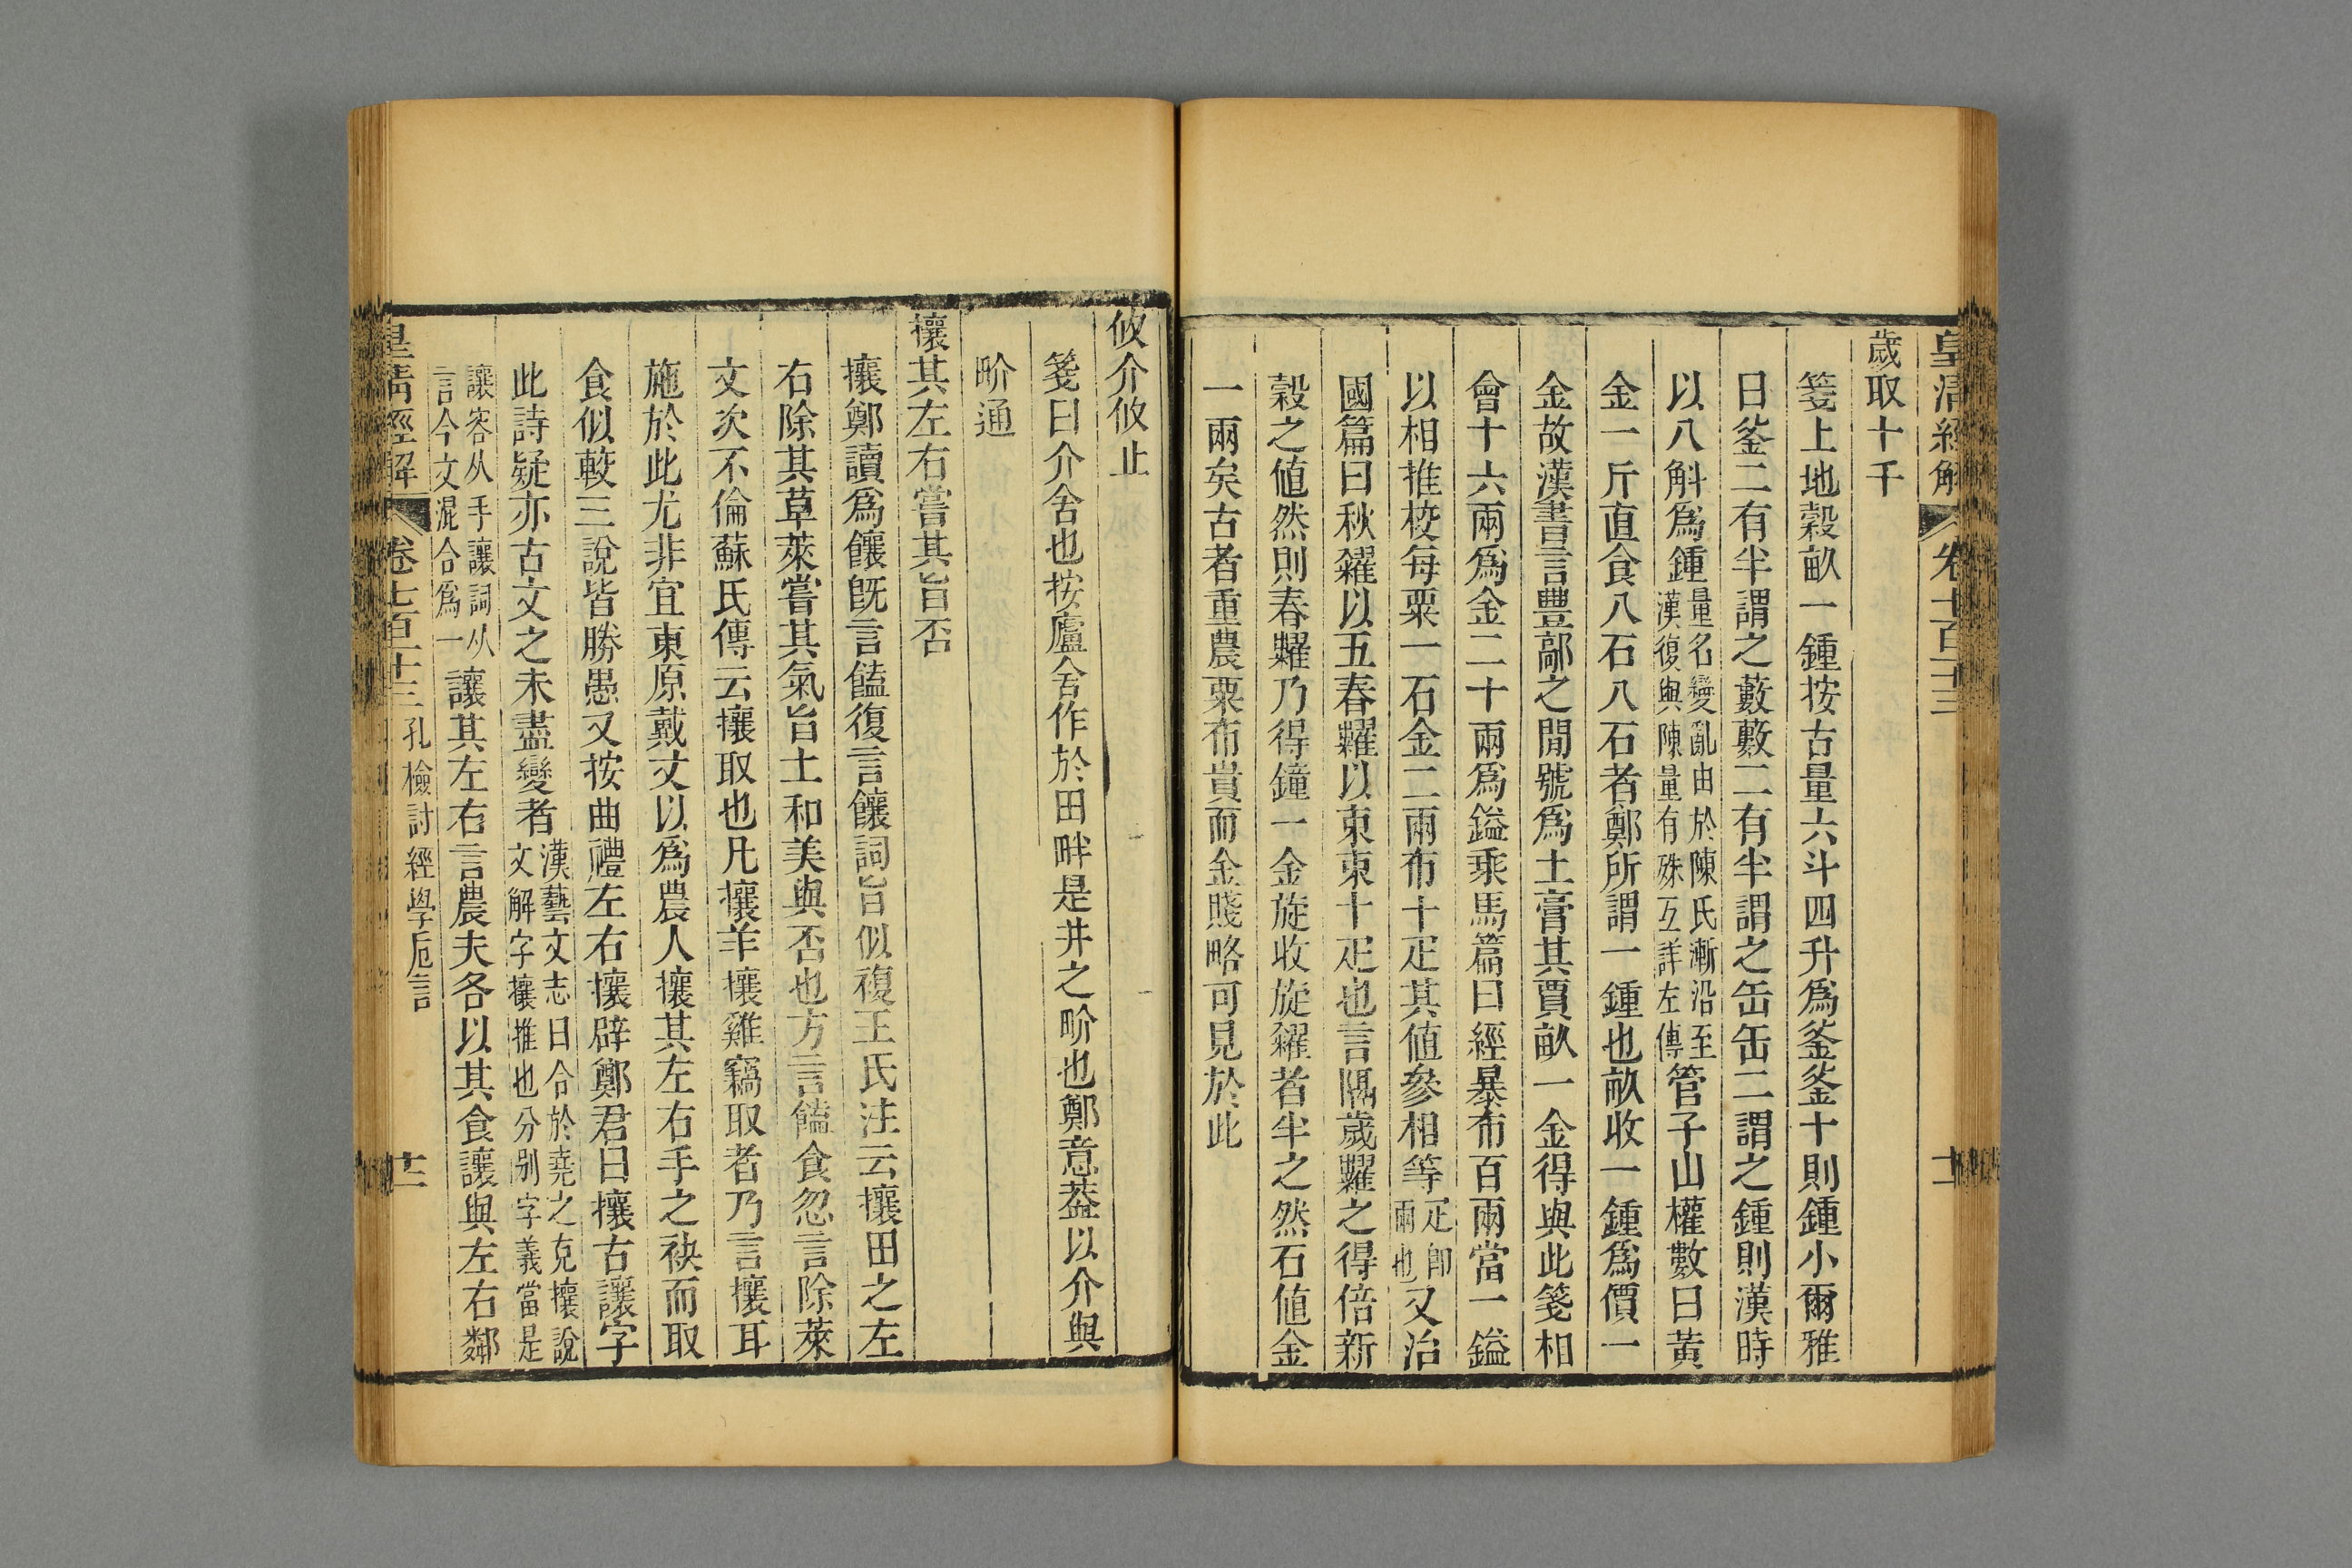 皇清經解 卷七百十三 十一
歲取十千
箋上地穀畝一鍾按古量六斗四升爲釜釜十則鍾小爾雅
曰釜二有半謂之藪藪二有半謂之缶缶二謂之鍾則漢時
以八斛爲鍾量名變亂由於陳氏漸沿至漢復與陳量有殊互詳左傳管子山權數曰黃
金一斤直食八石八石者鄭所謂一鍾也畝收一鍾爲價一
金故漢書言豐鄗之閒號爲土膏其賈畝一金得與此箋相
會十六兩爲金二十兩爲鎰乘馬篇曰經暴布百兩當一鎰
以相推校每粟一石金二兩布十疋其值參相等疋卽兩也又治
國篇曰秋糴以五春糶以束束十疋也言隔歲糶之得倍新
穀之値然則春糶乃得鐘一金旋收旋糴者半之然石値金
一兩矣古者重農粟布貴而金賤略可見於此
攸介攸止
箋曰介舍也按廬舍作於田畔是井之畍也鄭意葢以介與
畍通
攘其左右嘗其旨否
攘鄭讀爲饟旣言饁復言饟詞旨似複王氏注云攘田之左
右除其草萊嘗其氣旨土和美與否也方言饁食忽言除萊
文次不倫蘇氏傳云攘取也凡攘羊攘雞竊取者乃言攘耳
施於此尤非宜東原戴丈以爲農人攘其左右手之袂而取
食似較三說皆勝愚又按曲禮左右攘辟鄭君曰攘古讓字
此詩疑亦古文之未盡變者漢藝文志曰合於堯之克攘說文解字攘推也分别字義當是
讓容从手讓詞从言今文混合爲一讓其左右言農夫各以其食讓與左右鄰
皇清經解 卷七百十三 孔檢討經學卮言 十二